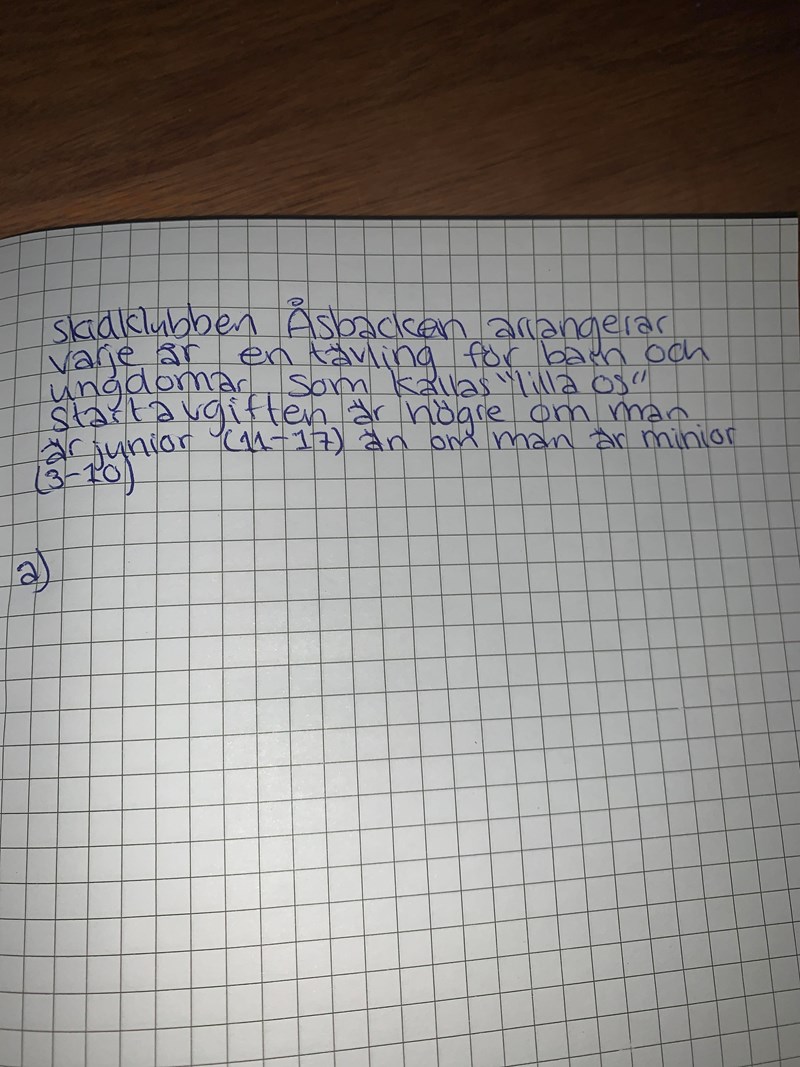 skidklubben Åsbacken arrangerar
varje år en tävling för barn och
ungdomar som kallas "lilla os"
startavgiften är högre om man
är junior (11-17) än om man är minior
(3-10)
a)